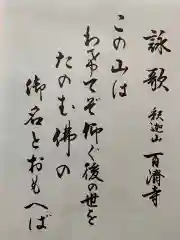 詠歌 釈迦山 百済寺
この山は
わけてぞ仰ぐ後の世を
たのむ佛の
御名とおもへば